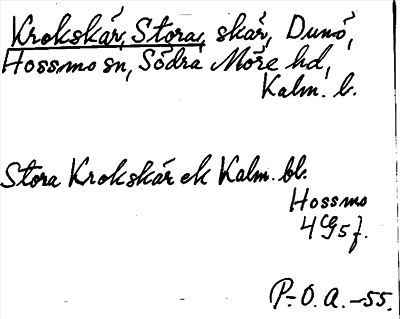 Krokskär, Stora, skär, Dunö,
Hossmo sn, Södra Möre hd,
Kalm. l.
Stora Krokskär ek Kalm. bl.
Hossmo
4G5f.
P.-O. A. -55.